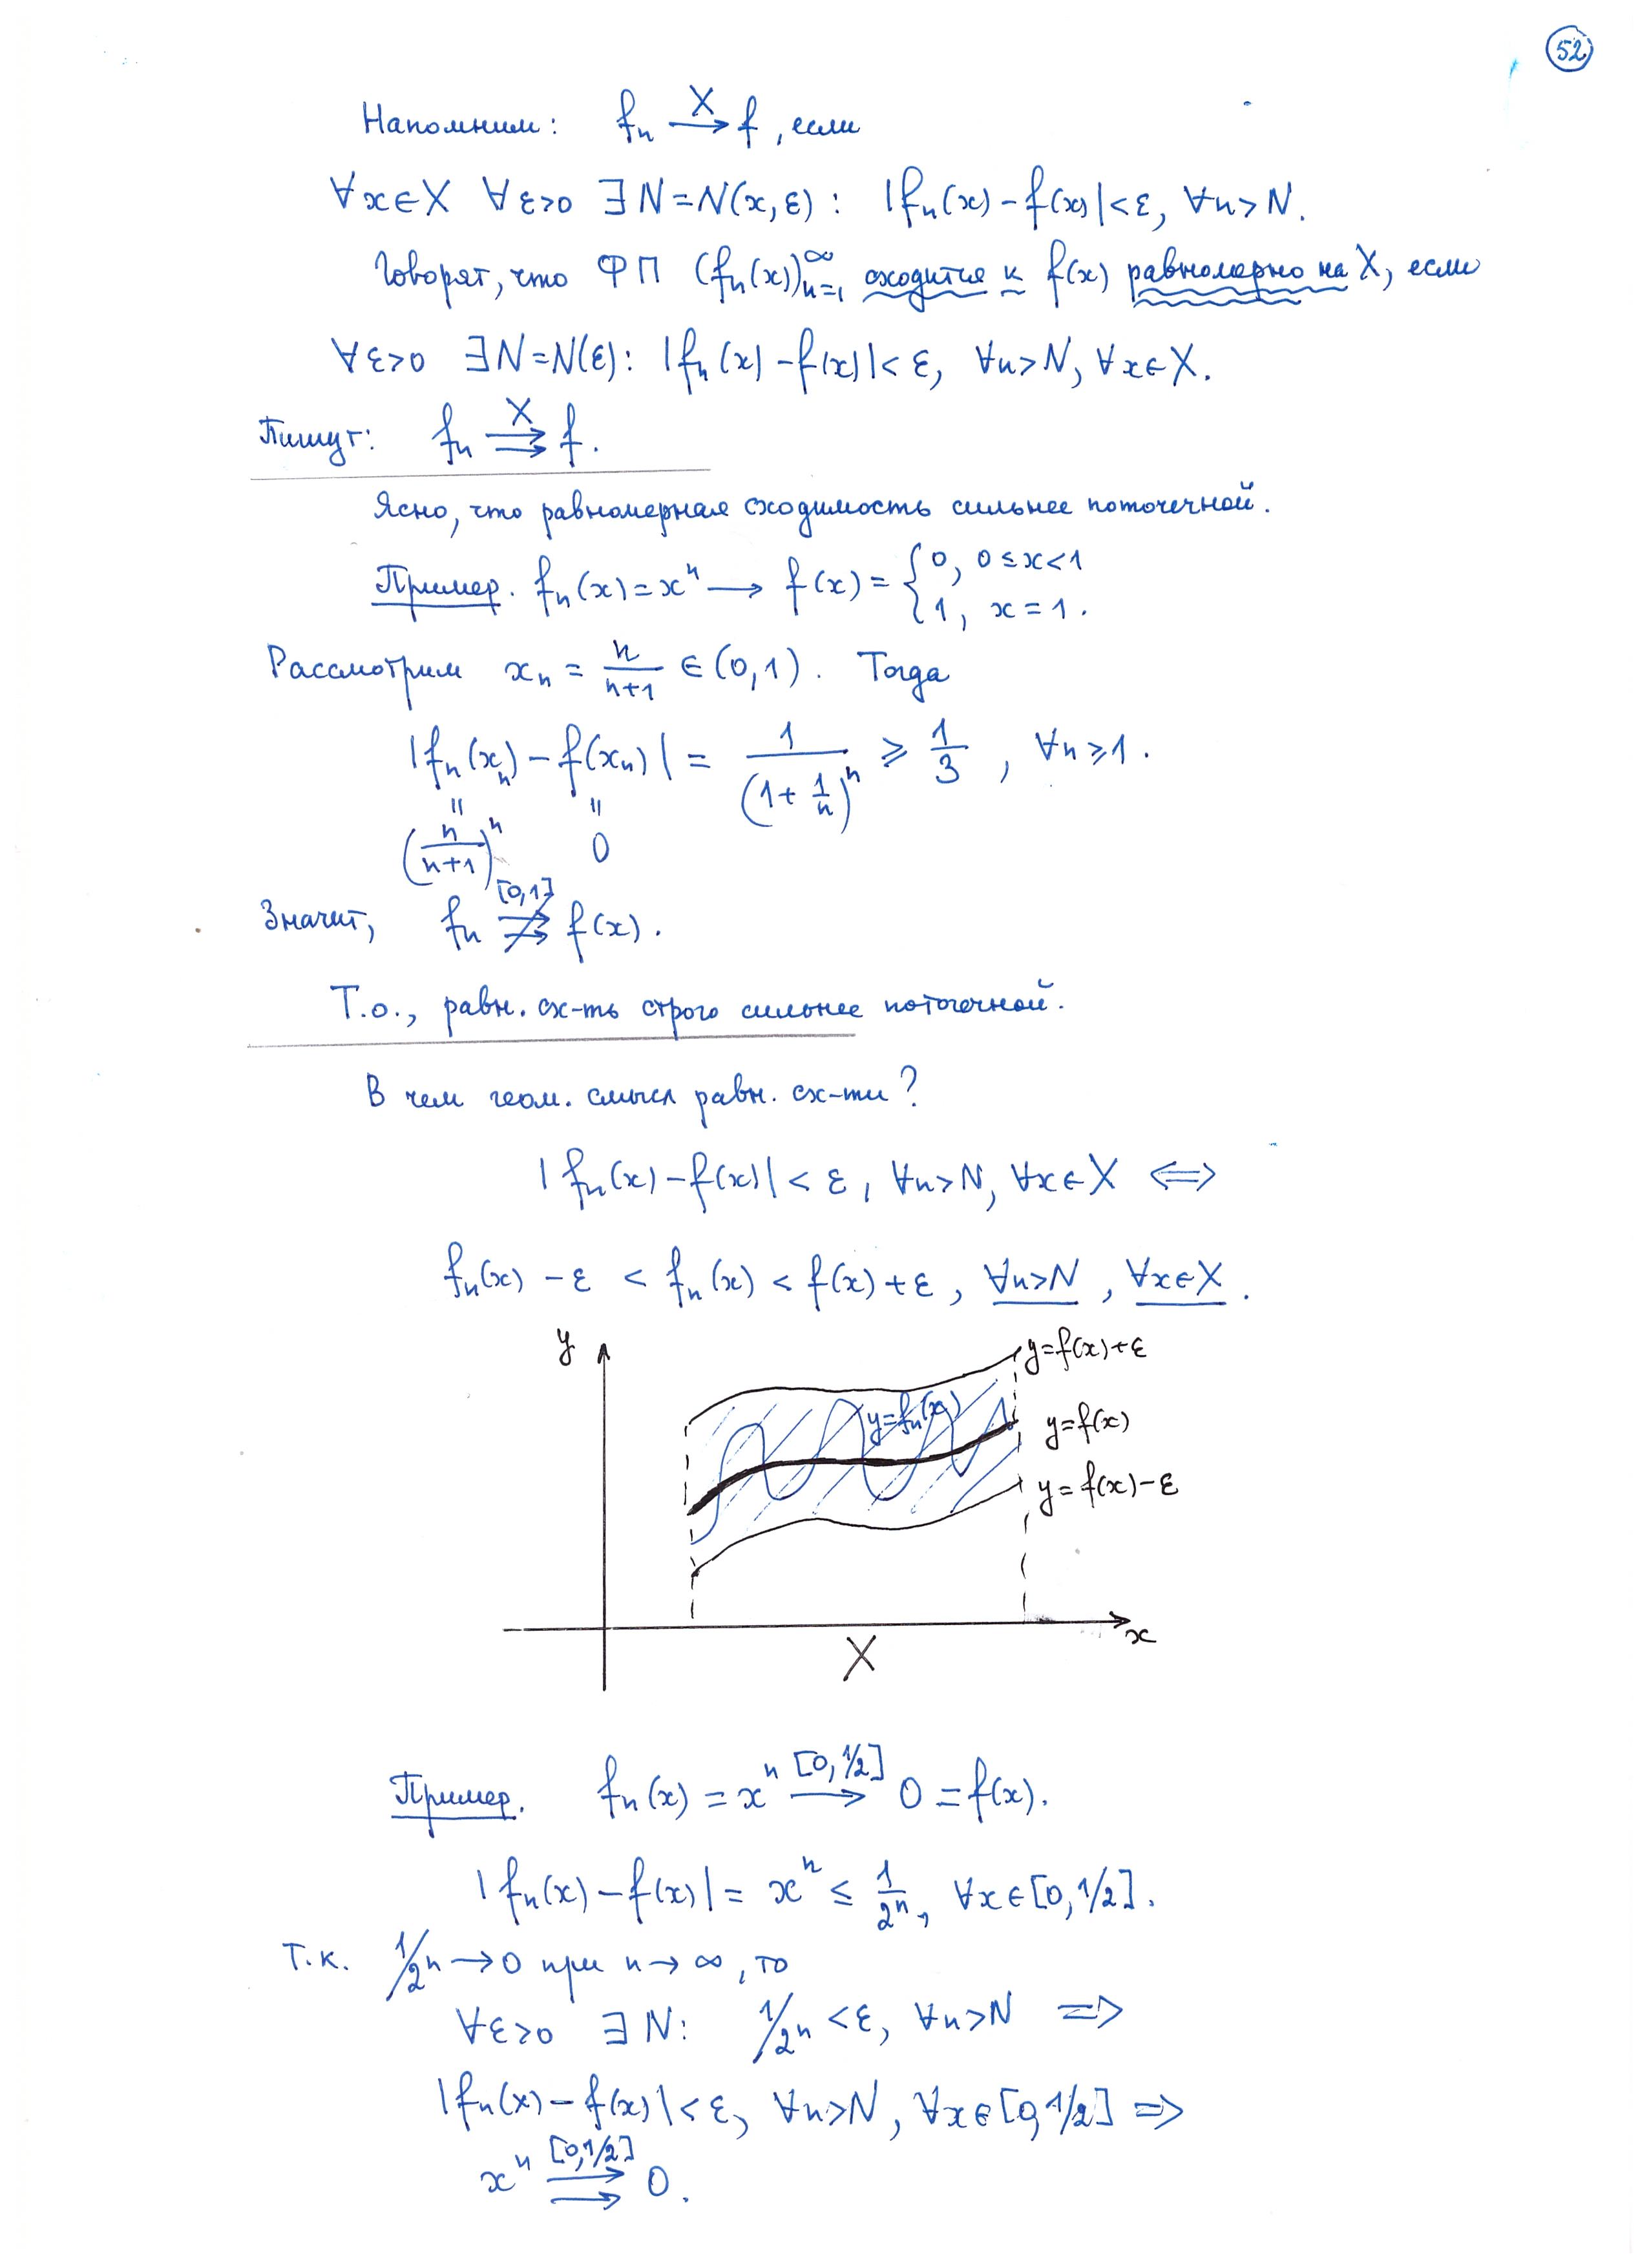 52
Напомним: fₙ —X→ f, если
∀x∈X ∀ε>0 ∃N=N(x,ε): |fₙ(x)-f(x)|<ε, ∀n>N.
Говорят, что ФП (fₙ(x))ₙ₌₁^∞ сходится к f(x) равномерно на X, если
∀ε>0 ∃N=N(ε): |fₙ(x)-f(x)|<ε, ∀n>N, ∀x∈X.
Пишут: fₙ ⇉^X f.
Ясно, что равномерная сходимость сильнее поточечной.
Пример. fₙ(x)=xⁿ → f(x)= { 0, 0≤x<1
1, x=1.
Рассмотрим xₙ = n/(n+1) ∈ (0,1). Тогда
|fₙ(xₙ)-f(xₙ)| = 1/(1+1/n)ⁿ ⩾ 1/3, ∀n⩾1.
= =
(n/(n+1))ⁿ 0
Значит, fₙ ⇉̸^[0,1] f(x).
Т.о., равн. сх-ть строго сильнее поточечной.
В чем геом. смысл равн. сх-ти?
|fₙ(x)-f(x)|<ε, ∀n>N, ∀x∈X ⟺
fₙ(x)-ε < fₙ(x) < f(x)+ε, ∀n>N, ∀x∈X.
y
y=f(x)+ε
y=fₙ(x)
y=f(x)
y=f(x)-ε
x
X
Пример. fₙ(x)=xⁿ —[0,1/2]→ 0=f(x).
|fₙ(x)-f(x)|=xⁿ ≤ 1/2ⁿ, ∀x∈[0,1/2].
Т.к. 1/2ⁿ→0 при n→∞, то
∀ε>0 ∃N: 1/2ⁿ<ε, ∀n>N ⇒
|fₙ(x)-f(x)|<ε, ∀n>N, ∀x∈[0,1/2] ⇒
xⁿ ⇉^[0,1/2] 0.